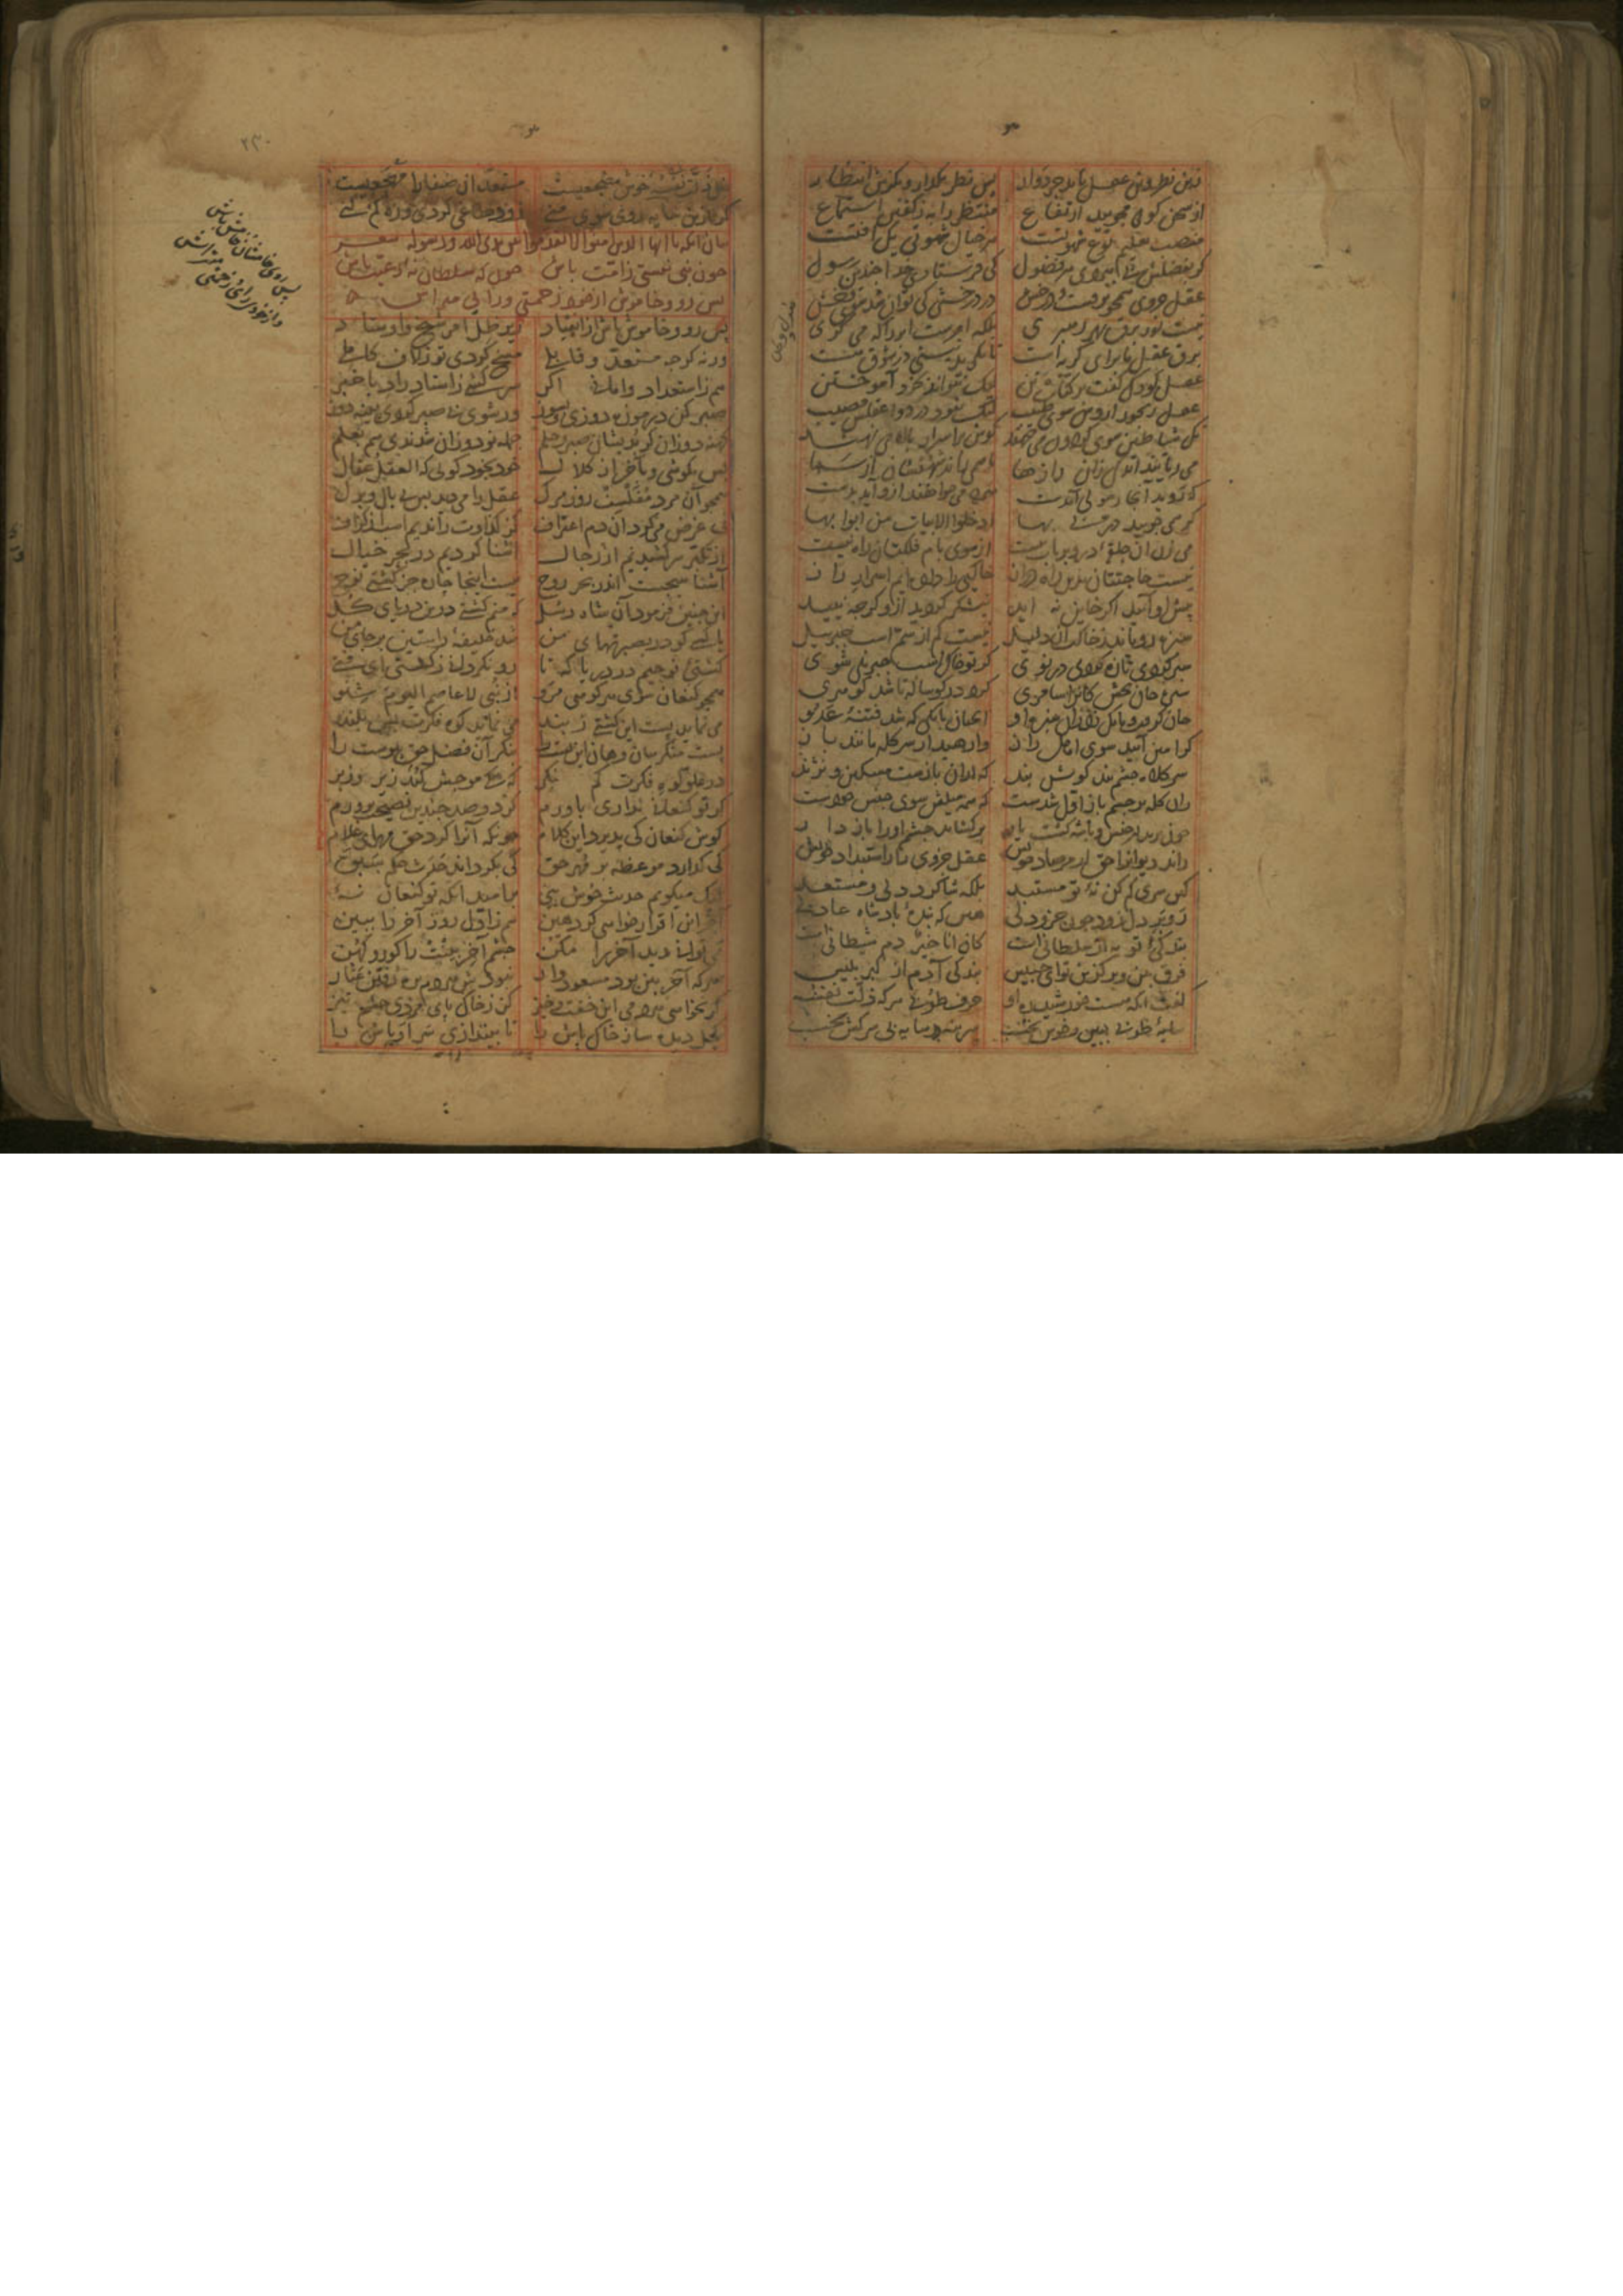 زین نظر وین عقل ناید جز دوار پس نظر بگذار و بگزین انتظار
از سخن گویی مجویید ارتفاع منتظر را به ز گفتن استماع
منصب تعلیم نوع شهوتست هر خیال شهوتی بت است
گر بفضلش پی ببردی هر فضول کی فرستادی خدا چندین رسول
عقل جزوی همچو برقست و درخش در درخشی کی توان شد سوی وخش
نیست نور برق بهر رهبری بلکه امرست ابر را که می گری
برق عقل ما برای گریه است تا بگرید نیستی در شوق هست
عقل کودک گفت بر کتاب تن لیک نتواند بخود آموختن
عقل رنجور آردش سوی طبیب لیک نبود در دوا عقلش مصیب
نک شیاطین سوی گردون می شدند گوش بر اسرار بالا می زدند
می ربودند اندکی زان رازها تا شهب می راندشان از سما
که روید آنجا رسولی آمدست هر چه می خواهید ازو آید بدست
گر همی جویید در بی بها ادخلوا الابیات من ابوابها
می زن آن حلقه در و بر باب بیست از سوی بام فلکتان راه نیست
نیست حاجتتان بدین راه دراز خاکیی را داده ایم اسرار راز
پیش او آیید اگر خاین نه اید نیشکر گردید ازو گرچه نیید
سبزه رویاند ز خاکت آن دلیل نیست کم از سم اسب جبرئیل
سبزه گردی تازه گردی در نوی گر تو خاک اسب جبریلی شوی
سبزه جان بخش کانرا سامری کرد در گوساله تا شد گوهری
جان گرفت و بانگ زد زان سبزه او آنچنان بانگی که شد فتنه عدو
گر امین آیید سوی اهل راز وا رهید از سر کله مانند باز
سر کلاه چشم بند گوش بند که ازان بازست مسکین و نژند
زان کله بر چشم بازان سد شدست که همه میلش سوی جنس خودست
چون برید از جنس و با شه گشت یار بر گشاید چشم او را بازدار
راند دیوانرا حق از مرصاد خویش عقل جزوی را ز استبداد خویش
که سری کم کن نه تو مستبد بلکه شاگرد دلی و مستعد
رو بر دل رو که تو جزو دلی هین که بنده پادشاه عادلی
بندگی او به از سلطانیست که انا خیر دم شیطانیست
فرق بین و برگزین تو ای حبیس بندگی آدم از کبر بلیس
گفت آنکه هست خورشید ره او حرف طوبی هر که ذلت نفسه
سایه طوبی ببین و خوش بخسب سر بنه در سایه بی سرکش بخسب
ظل ذلت نفسه خوش مضجعیست مستعد آن صفا را مهجعیست
گر ازین سایه روی سوی منی زود طاغی گردی و ره گم کنی
بیان آنکه یا ایها الذین آمنوا لا تقدموا بین یدی الله و رسوله
چون نبی نیستی ز امت باش چون که سلطان نه رعیت باش
پس رو و خاموش از خود زحمتی ورایی متراش
پس رو و خاموش باش از انقیاد زیر ظل امر شیخ و اوستاد
ورنه گرچه مستعد و قابلی مسخ گردی تو ز لاف کاملی
هم ز استعداد وامانی اگر سر کشی ز استاد راد با خبر
صبر کن در موزه دوزی و بسوز ور شوی بی صبر گردی پینه دوز
کهنه دوزان گر بدیشان صبر و حلم جمله نو دوزان شدندی هم بعلم
بس بکوشی و بآخر از کلال خود بخود گویی که العقل عقال
همچو آن مرد مفلسف روز مرگ عقل را می دید بس بی بال و برگ
بی غرض می کرد آن دم اعتراف کز ذکاوت راندیم اسب از گزاف
از تکبر سر کشیدیم از رجال آشنا کردیم در بحر خیال
آشنا هیچست اندر بحر روح نیست اینجا چاره جز کشتی نوح
این چنین فرمود آن شاه رسل که منم کشتی درین دریای کل
یا کسی کو در بصیرتهای من شد خلیفه راستین بر جای من
کشتی نوحیم در دریا که تا رو نگردانی ز کشتی ای فتی
همچو کنعان سوی هر کوهی مرو از نبی لا عاصم الیوم شنو
می نماید پست این کشتی ز بند می نماید کوه فکرت بس بلند
پست منگر هان و هان این پست را بنگر آن فضل حق پیوست را
در علو کوه فکرت کم نگر که یکی موجش کند زیر و زبر
گر تو کنعانی نداری باورم گر دو صد چندین نصیحت پرورم
گوش کنعان کی پذیرد این کلام چونکه آنرا کرد حق مهر و ختام
کی گذارد موعظه بر مهر حق کی بگرداند حدث حکم سبق
لیک میگویم حدیث خوش پیی بر امید آنکه تو کنعان نه
آخر این اقرار خواهی کرد هین هم ز اول روز آخر را ببین
می توانی دید آخر را مکن چشم آخر بینت را کور و کهن
هر که آخر بین بود مسعود وار نبودش هر دم بره رفتن عثار
گر نخواهی هر دمی این خفت و خیز کن ز خاک پای مردی چشم تیز
کحل دیده ساز خاک پاش را تا بیندازی سر اوباش را
پس رو خامشان خامش باش
وز خودرایی زحمتی متراش
۲۳۰